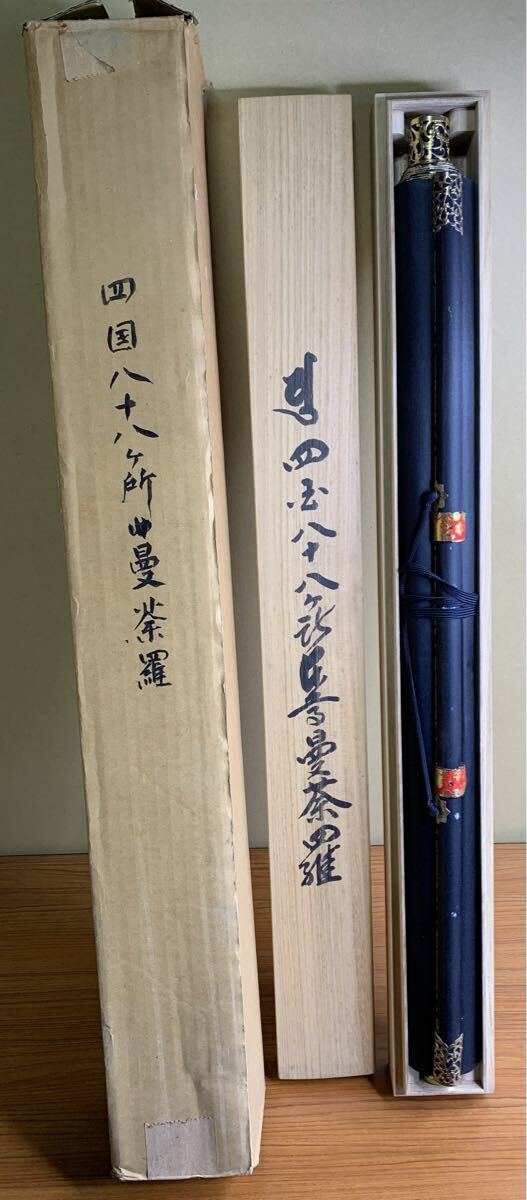 四国八十八ヶ所曼荼羅
四国八十八ヶ所本尊曼荼羅